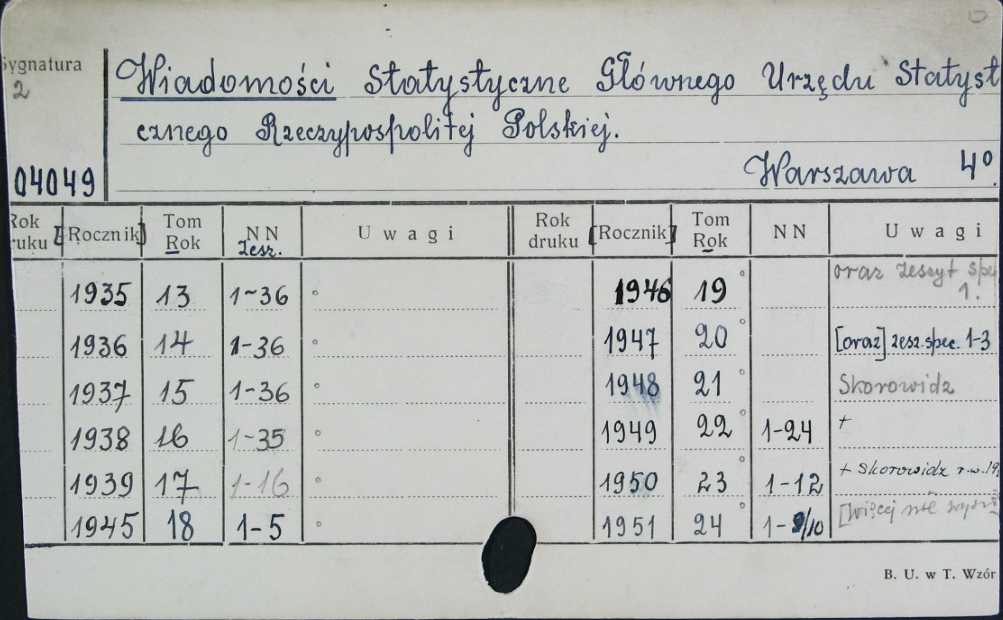 Sygnatura
2
04049
Wiadomości Statystyczne Głównego Urzędu Statyst
cznego Rzeczypospolitej Polskiej.
Warszawa 4º.
Rok druku [Rocznik] Tom Rok NN zesz. Uwagi Rok druku [Rocznik] Tom Rok NN Uwagi
1935 13 1-36 1946 19 oraz zeszyt spec 1.
1936 14 1-36 1947 20 [oraz] zesz. spec. 1-3
1937 15 1-36 1948 21 Skorowidz
1938 16 1-35 1949 22 1-24 +
1939 17 1-16 1950 23 1-12 + Skorowidz r-w. 19
1945 18 1-5 1951 24 1-9/10 [więcej nie
B. U. w T. Wzór